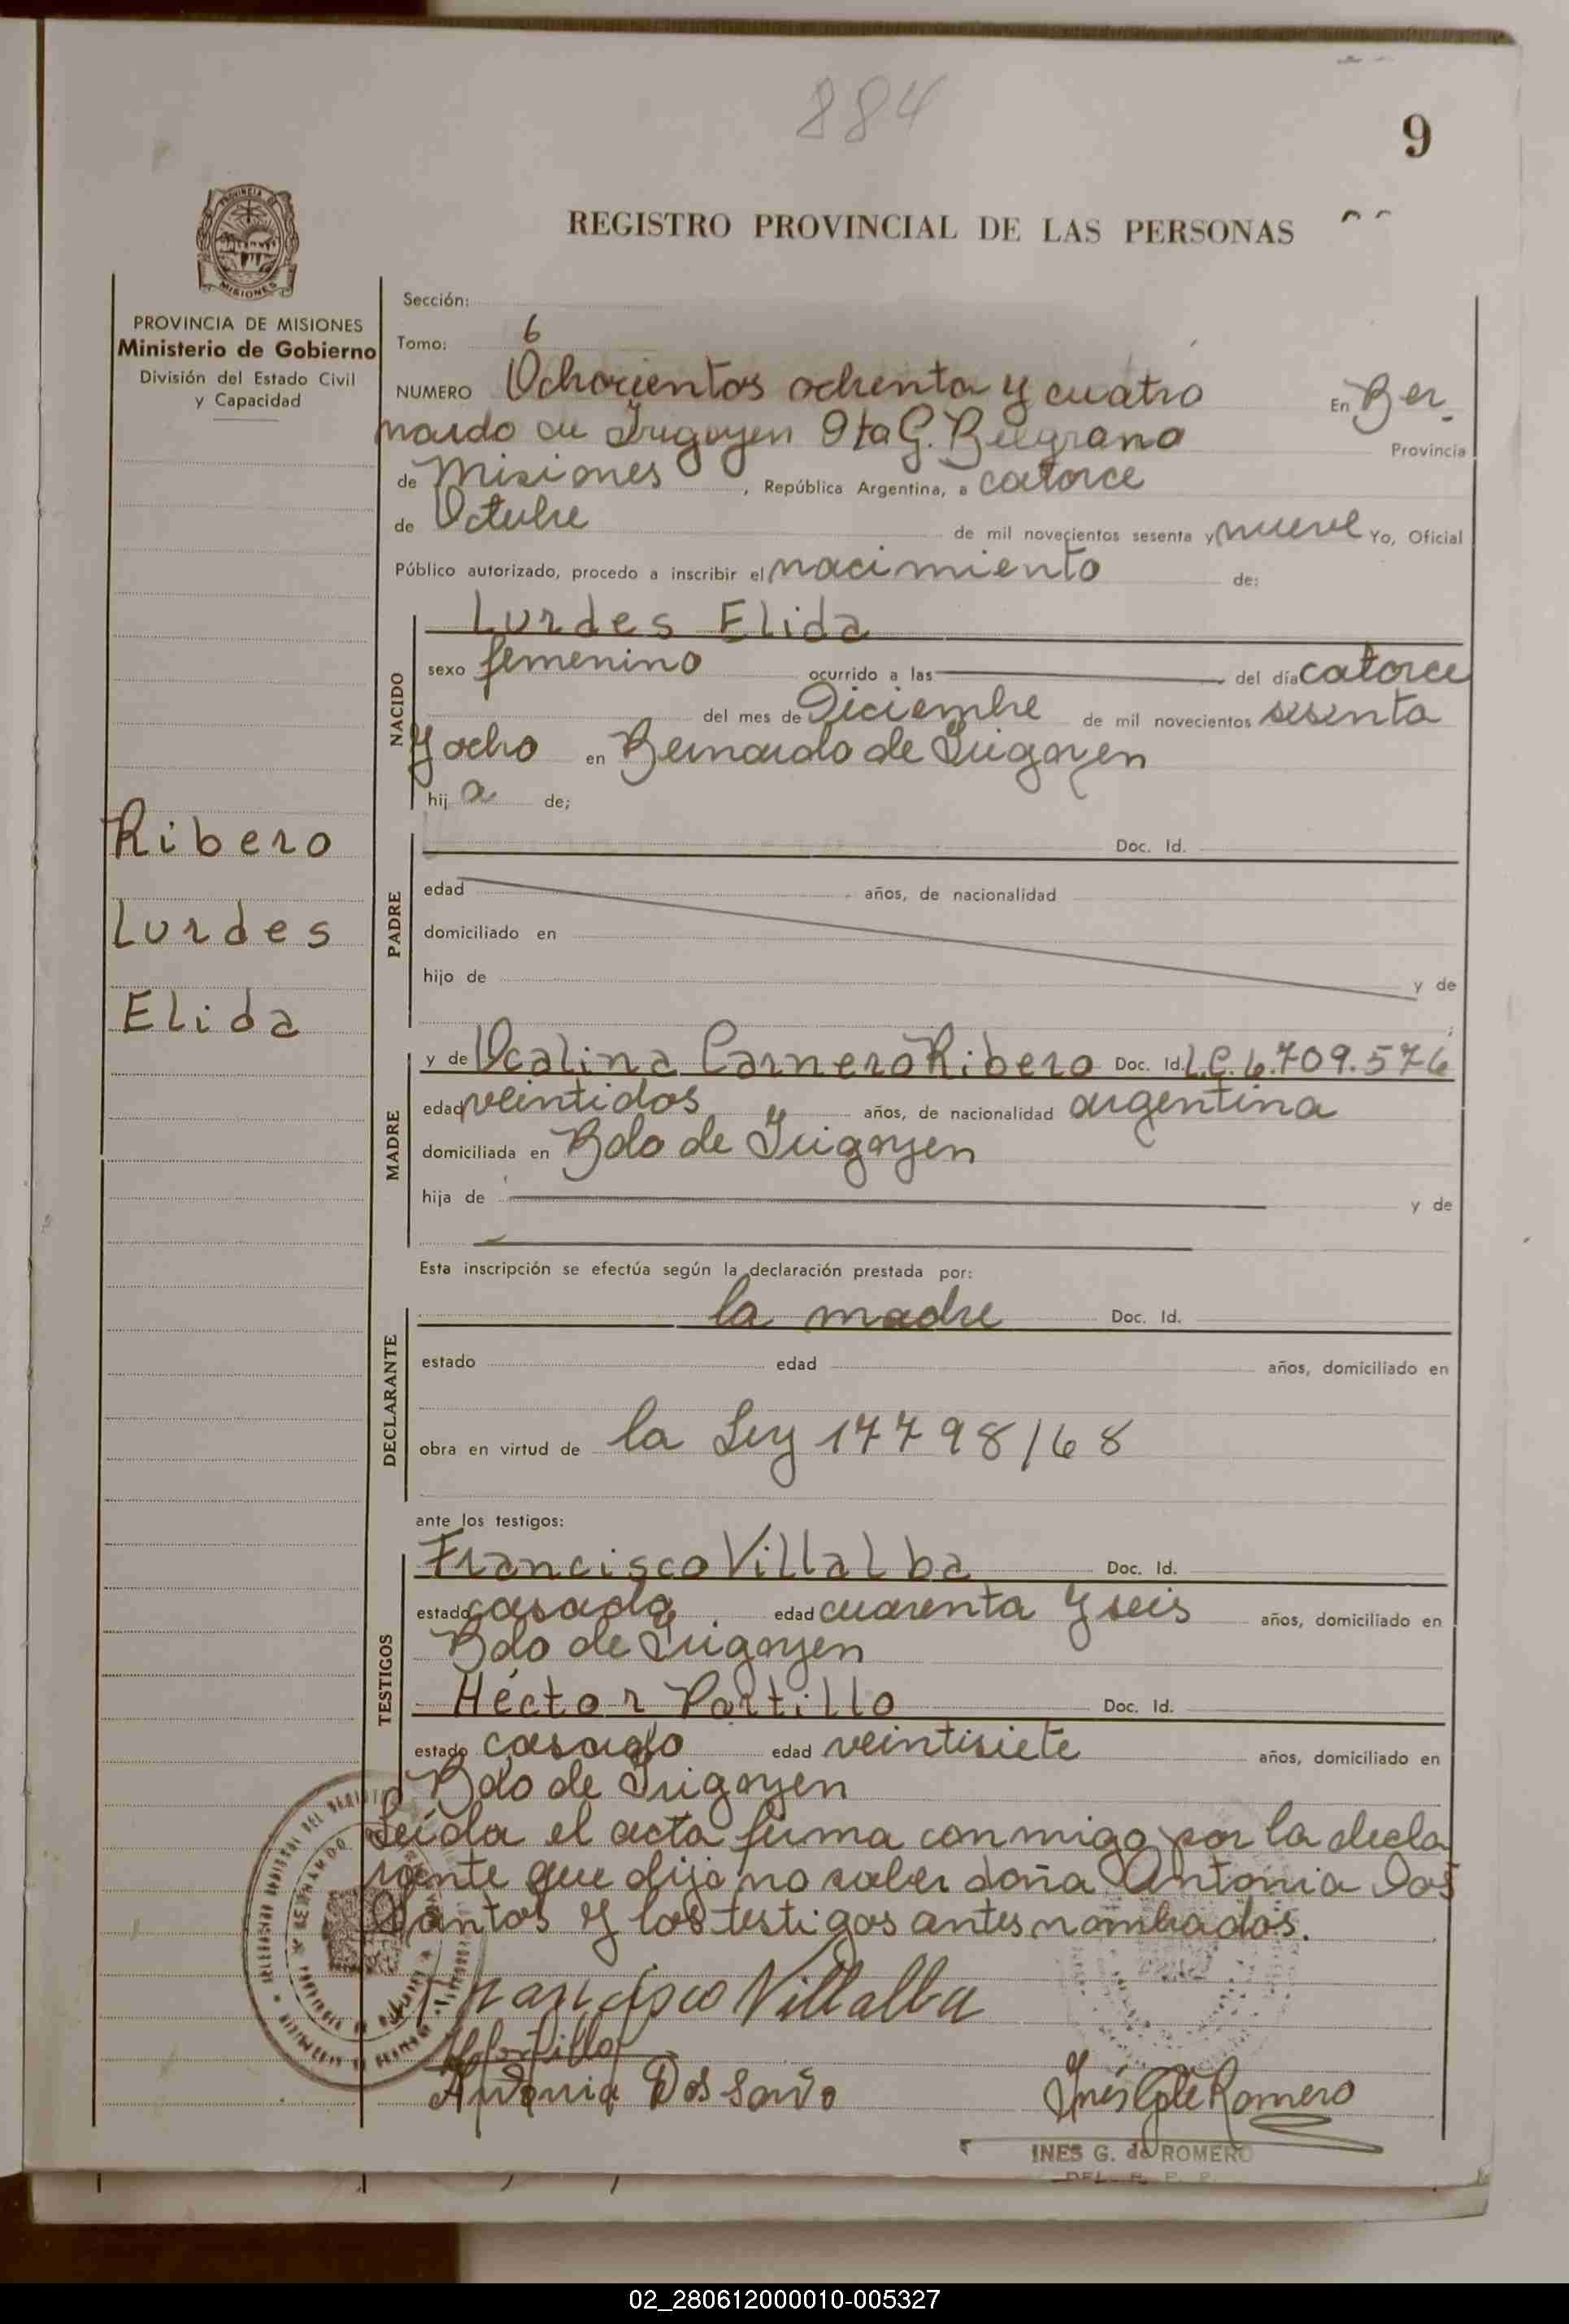 884
9
PROVINCIA DE
MISIONES
REGISTRO PROVINCIAL DE LAS PERSONAS
PROVINCIA DE MISIONES
Ministerio de Gobierno
División del Estado Civil
y Capacidad
Ribero
Lurdes
Elida
Sección:
Tomo: 6
NUMERO Ochocientos ochenta y cuatro En Ber-
nardo de Irigoyen Dto G. Belgrano Provincia
de Misiones, República Argentina, a catorce
de Octubre de mil novecientos sesenta y nueve Yo, Oficial
Público autorizado, procedo a inscribir el nacimiento de:
NACIDO
Lurdes Elida
sexo femenino ocurrido a las del día catorce
del mes de Diciembre de mil novecientos sesenta
y ocho en Bernardo de Irigoyen
hij a de;
PADRE
Doc. Id.
edad años, de nacionalidad
domiciliado en
hijo de y de
;
MADRE
y de Ocalina Carnero Ribero Doc. Id. L.C. 6.709.576
edad veintidos años, de nacionalidad argentina
domiciliada en Bdo de Irigoyen
hija de y de
Esta inscripción se efectúa según la declaración prestada por:
DECLARANTE
la madre Doc. Id.
estado edad años, domiciliado en
obra en virtud de la Ley 17798/68
ante los testigos:
TESTIGOS
Francisco Villalba Doc. Id.
estado casado edad cuarenta y seis años, domiciliado en
Bdo de Irigoyen
Héctor Portillo Doc. Id.
estado casado edad veintisiete años, domiciliado en
Bdo de Irigoyen
Leída el acta firma conmigo por la decla
rante que dijo no saber doña Antonia Dos
Santos y los testigos antes nombrados.
Francisco Villalba
HPortillo
Antonia Dos Santo
Inés G de Romero
INES G. de ROMERO
DEL. R. P. P.
02_280612000010-005327